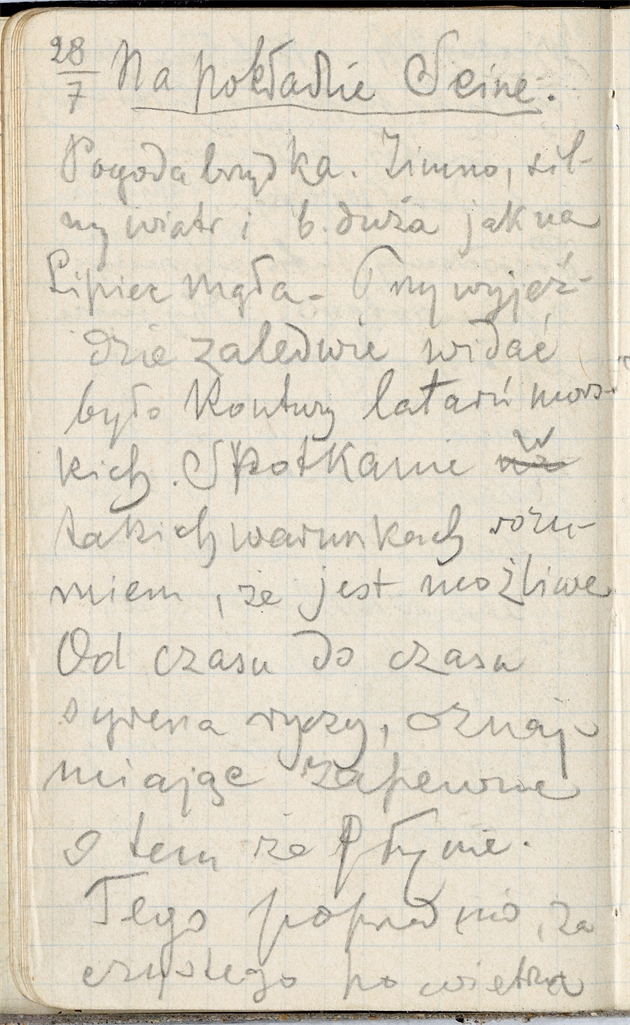 28/7 Na pokładzie Seine.
Pogoda brzydka. Zimno, sil-
ny wiatr i b. duża jak na
Lipiec mgła. Przy wyjeź-
dzie zaledwie widać
było Kontury latarń mors-
kich. Spotkanie w
takich warunkach rozu-
miem, że jest możliwe
Od czasu do czasu
syrena ryczy, oznaj-
miając zapewne
o tem że płynie.
Tego poprzednio, za
czystego powietrza